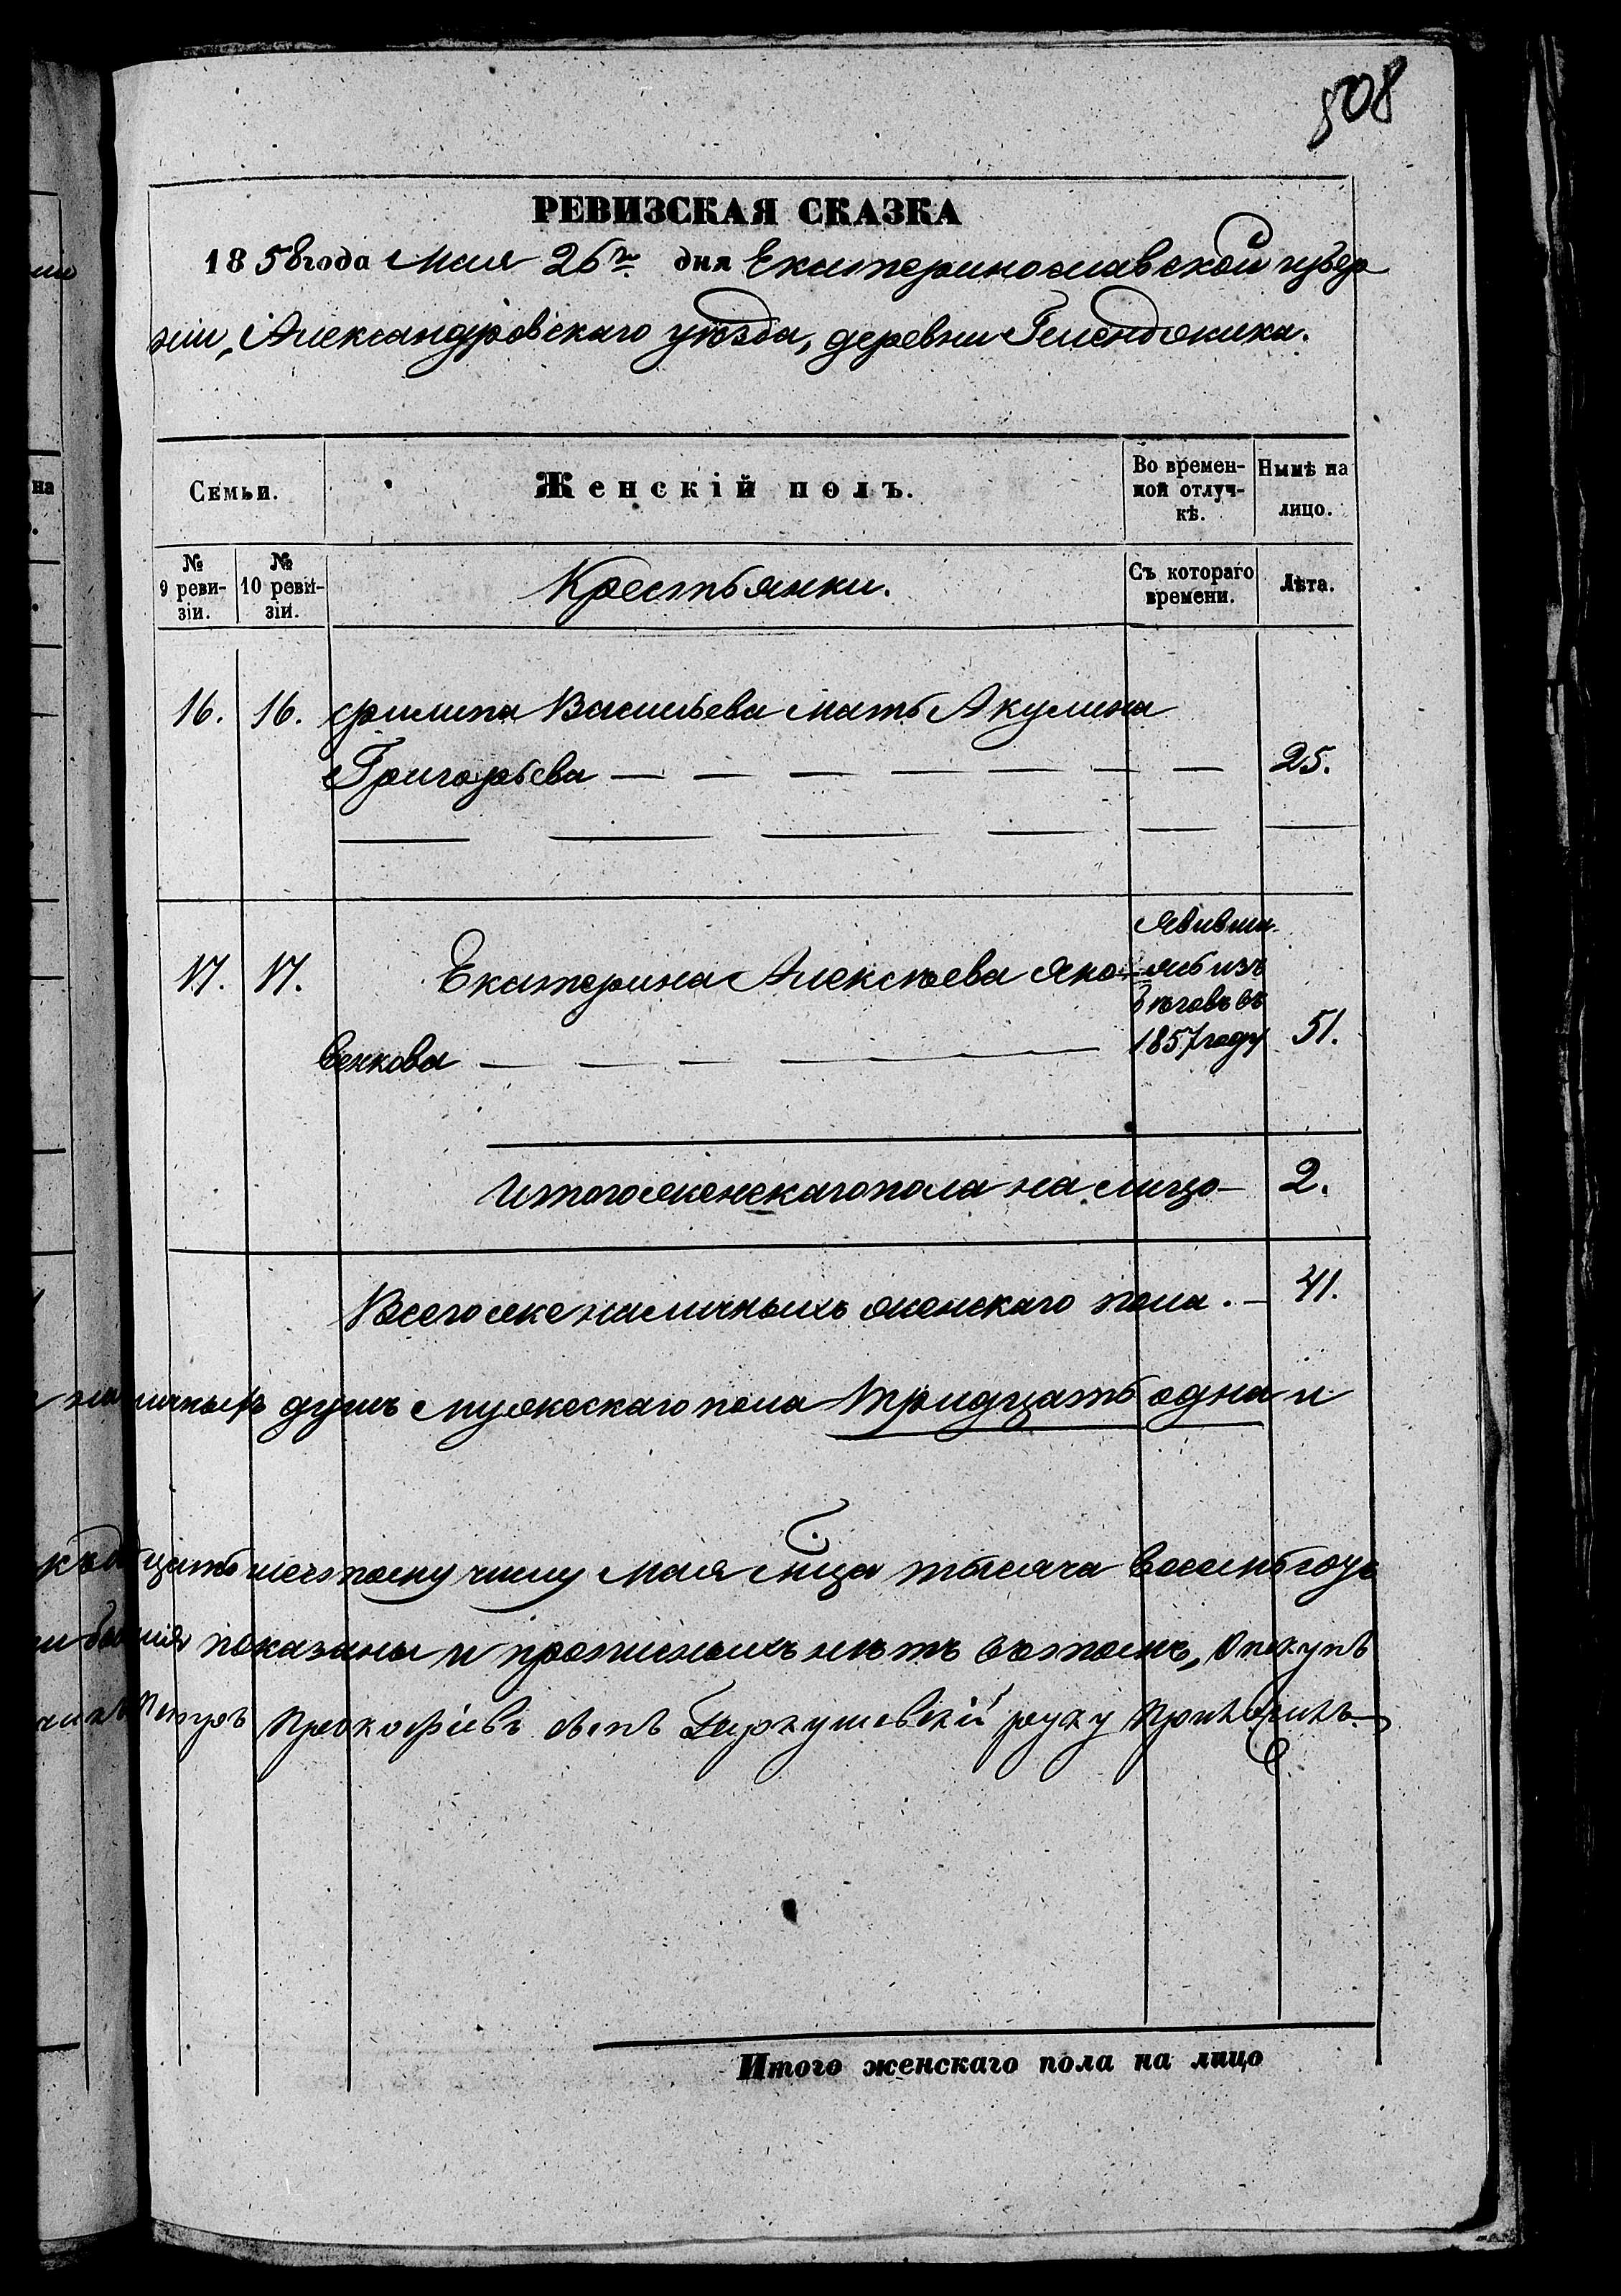 508
РЕВИЗСКАЯ СКАЗКА
1858 года Мая 26го дня Екатеринославской губер
нии, Александровскаго уѣзда, деревни Гелендчика.
Семьи.
Женскій полъ.
Во времен-
ной отлуч-
кѣ.
Нынѣ на
лицо.
№
9 реви-
зіи.
№
10 реви-
зіи.
Крестьянки.
Съ котораго
времени.
Лѣта.
16. 16. Филипа Васильева мать Акулина
Григорьева — — — — — — — 25.
17. 17. Екатерина Алексѣева Яко-
венкова — — — — 51.
Явивша-
яся изъ
бѣговъ въ
1857 году
Итого женскаго пола на лицо — 2.
Всего же наличныхъ женскаго пола. — 41.
наличныхъ душъ мужескаго пола тридцать одна и
шестому числу Мая мца тысяча восемьсотъ
показаны и прописныхъ нѣтъ въ томъ, Опекунъ
Петръ Прокофіевъ сынъ Гаркушевскій руку приложилъ
Итого женскаго пола на лицо